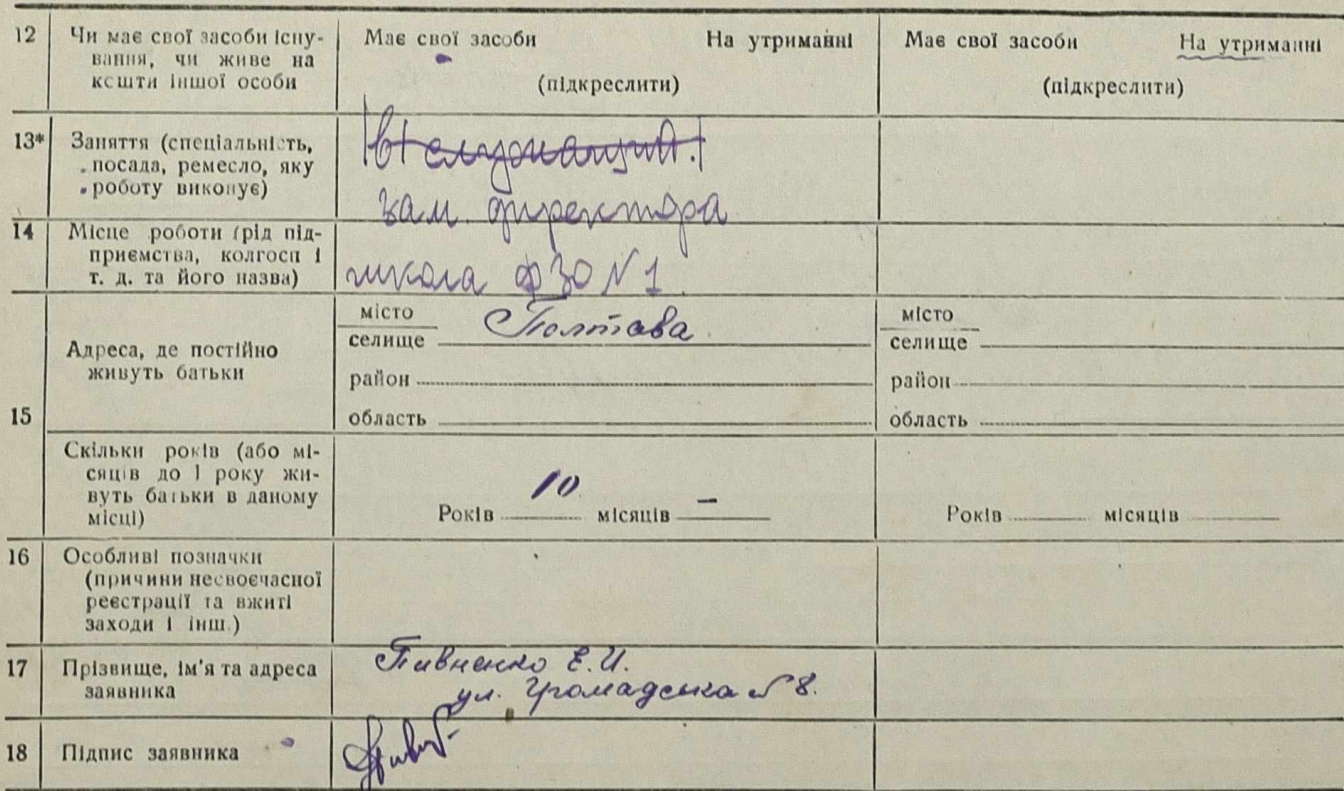 12 Чи має свої засоби існу-
вання, чи живе на
кошти іншої особи
Має свої засоби На утриманні
(підкреслити)
Має свої засоби На утриманні
(підкреслити)
13* Заняття (спеціальність,
посада, ремесло, яку
роботу виконує)
зам. директора
14 Місце роботи (рід під-
приємства, колгосп і
т. д. та його назва)
школа ФЗО №1
15
Адреса, де постійно
живуть батьки
місто Полтава
селище
район
область
місто
селище
район
область
Скільки років (або мі-
сяців до 1 року жи-
вуть батьки в даному
місці)
Років 10 місяців –
Років місяців
16 Особливі позначки
(причини несвоєчасної
реєстрації та вжиті
заходи і інш.)
17 Прізвище, ім'я та адреса
заявника
Пивненко Е.И.
ул. Громадська № 8.
18 Підпис заявника